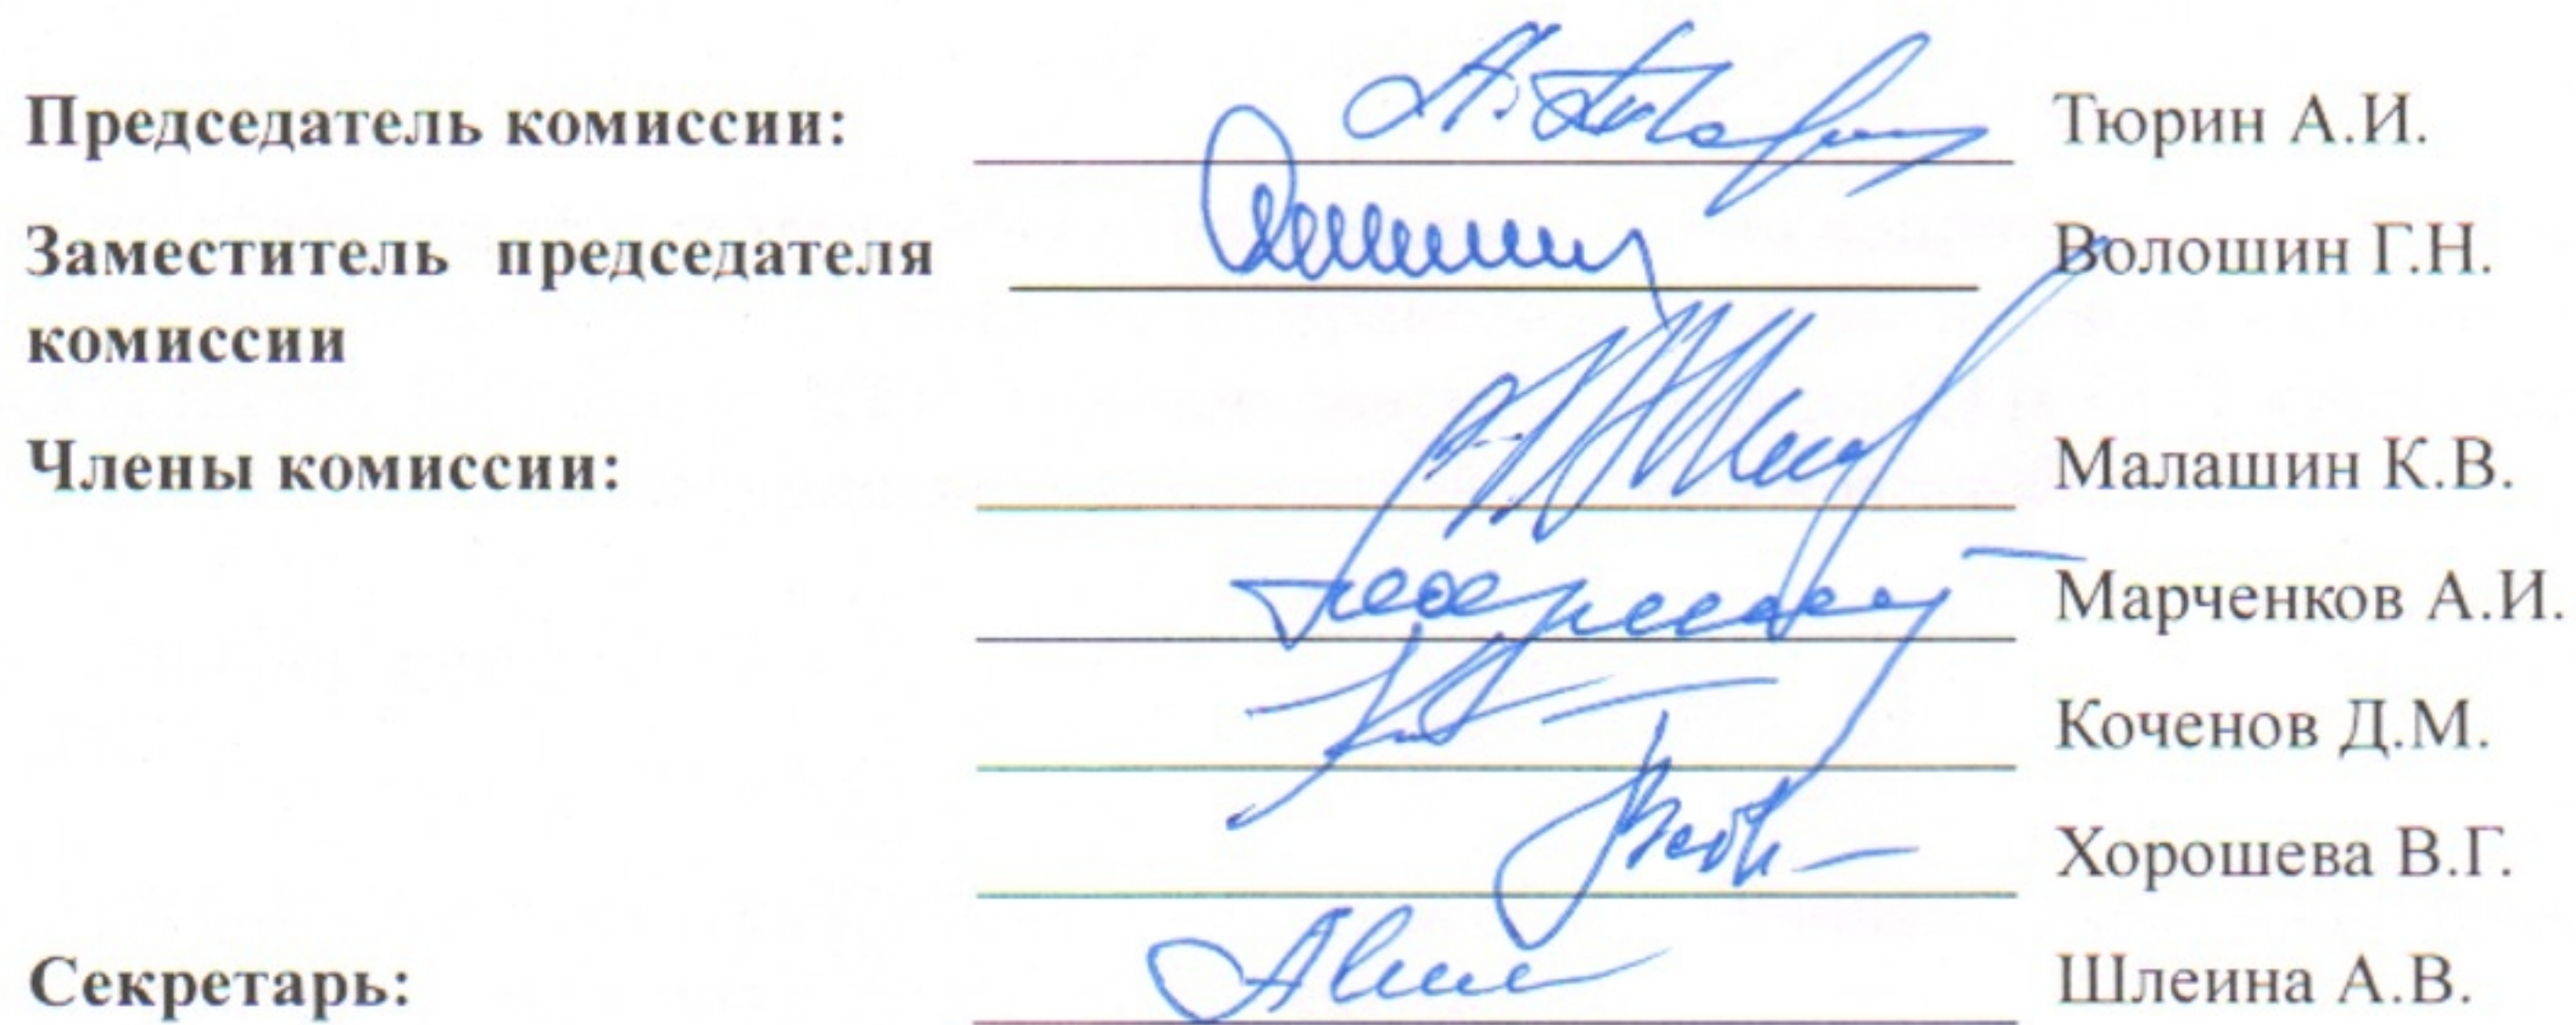 Председатель комиссии: Тюрин А.И.
Заместитель председателя Волошин Г.Н.
комиссии
Члены комиссии: Малашин К.В.
Марченков А.И.
Коченов Д.М.
Хорошева В.Г.
Секретарь: Шлеина А.В.